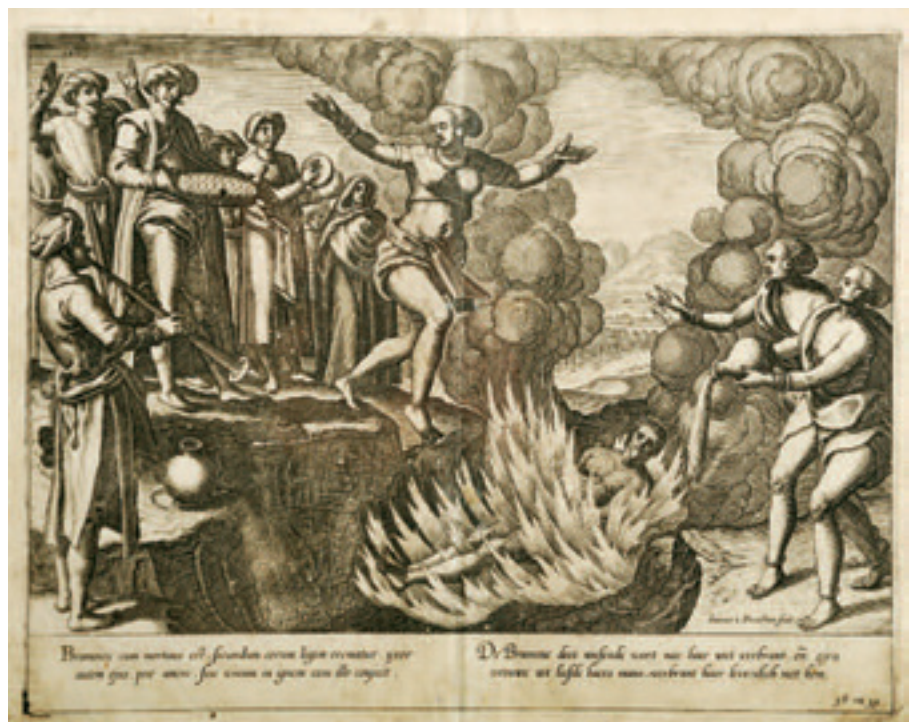 Bramenes cum mortuus est, secundum eorum legem crematur, uxor
autem ejus, prae amore, sese vivam in ignem cum illo conjicit.
De Bramene doot wesende wort nae haer wet verbrant, en syn
vrouwe uit liefde haers mans, verbrant haer levendich met hem.
58 en 59